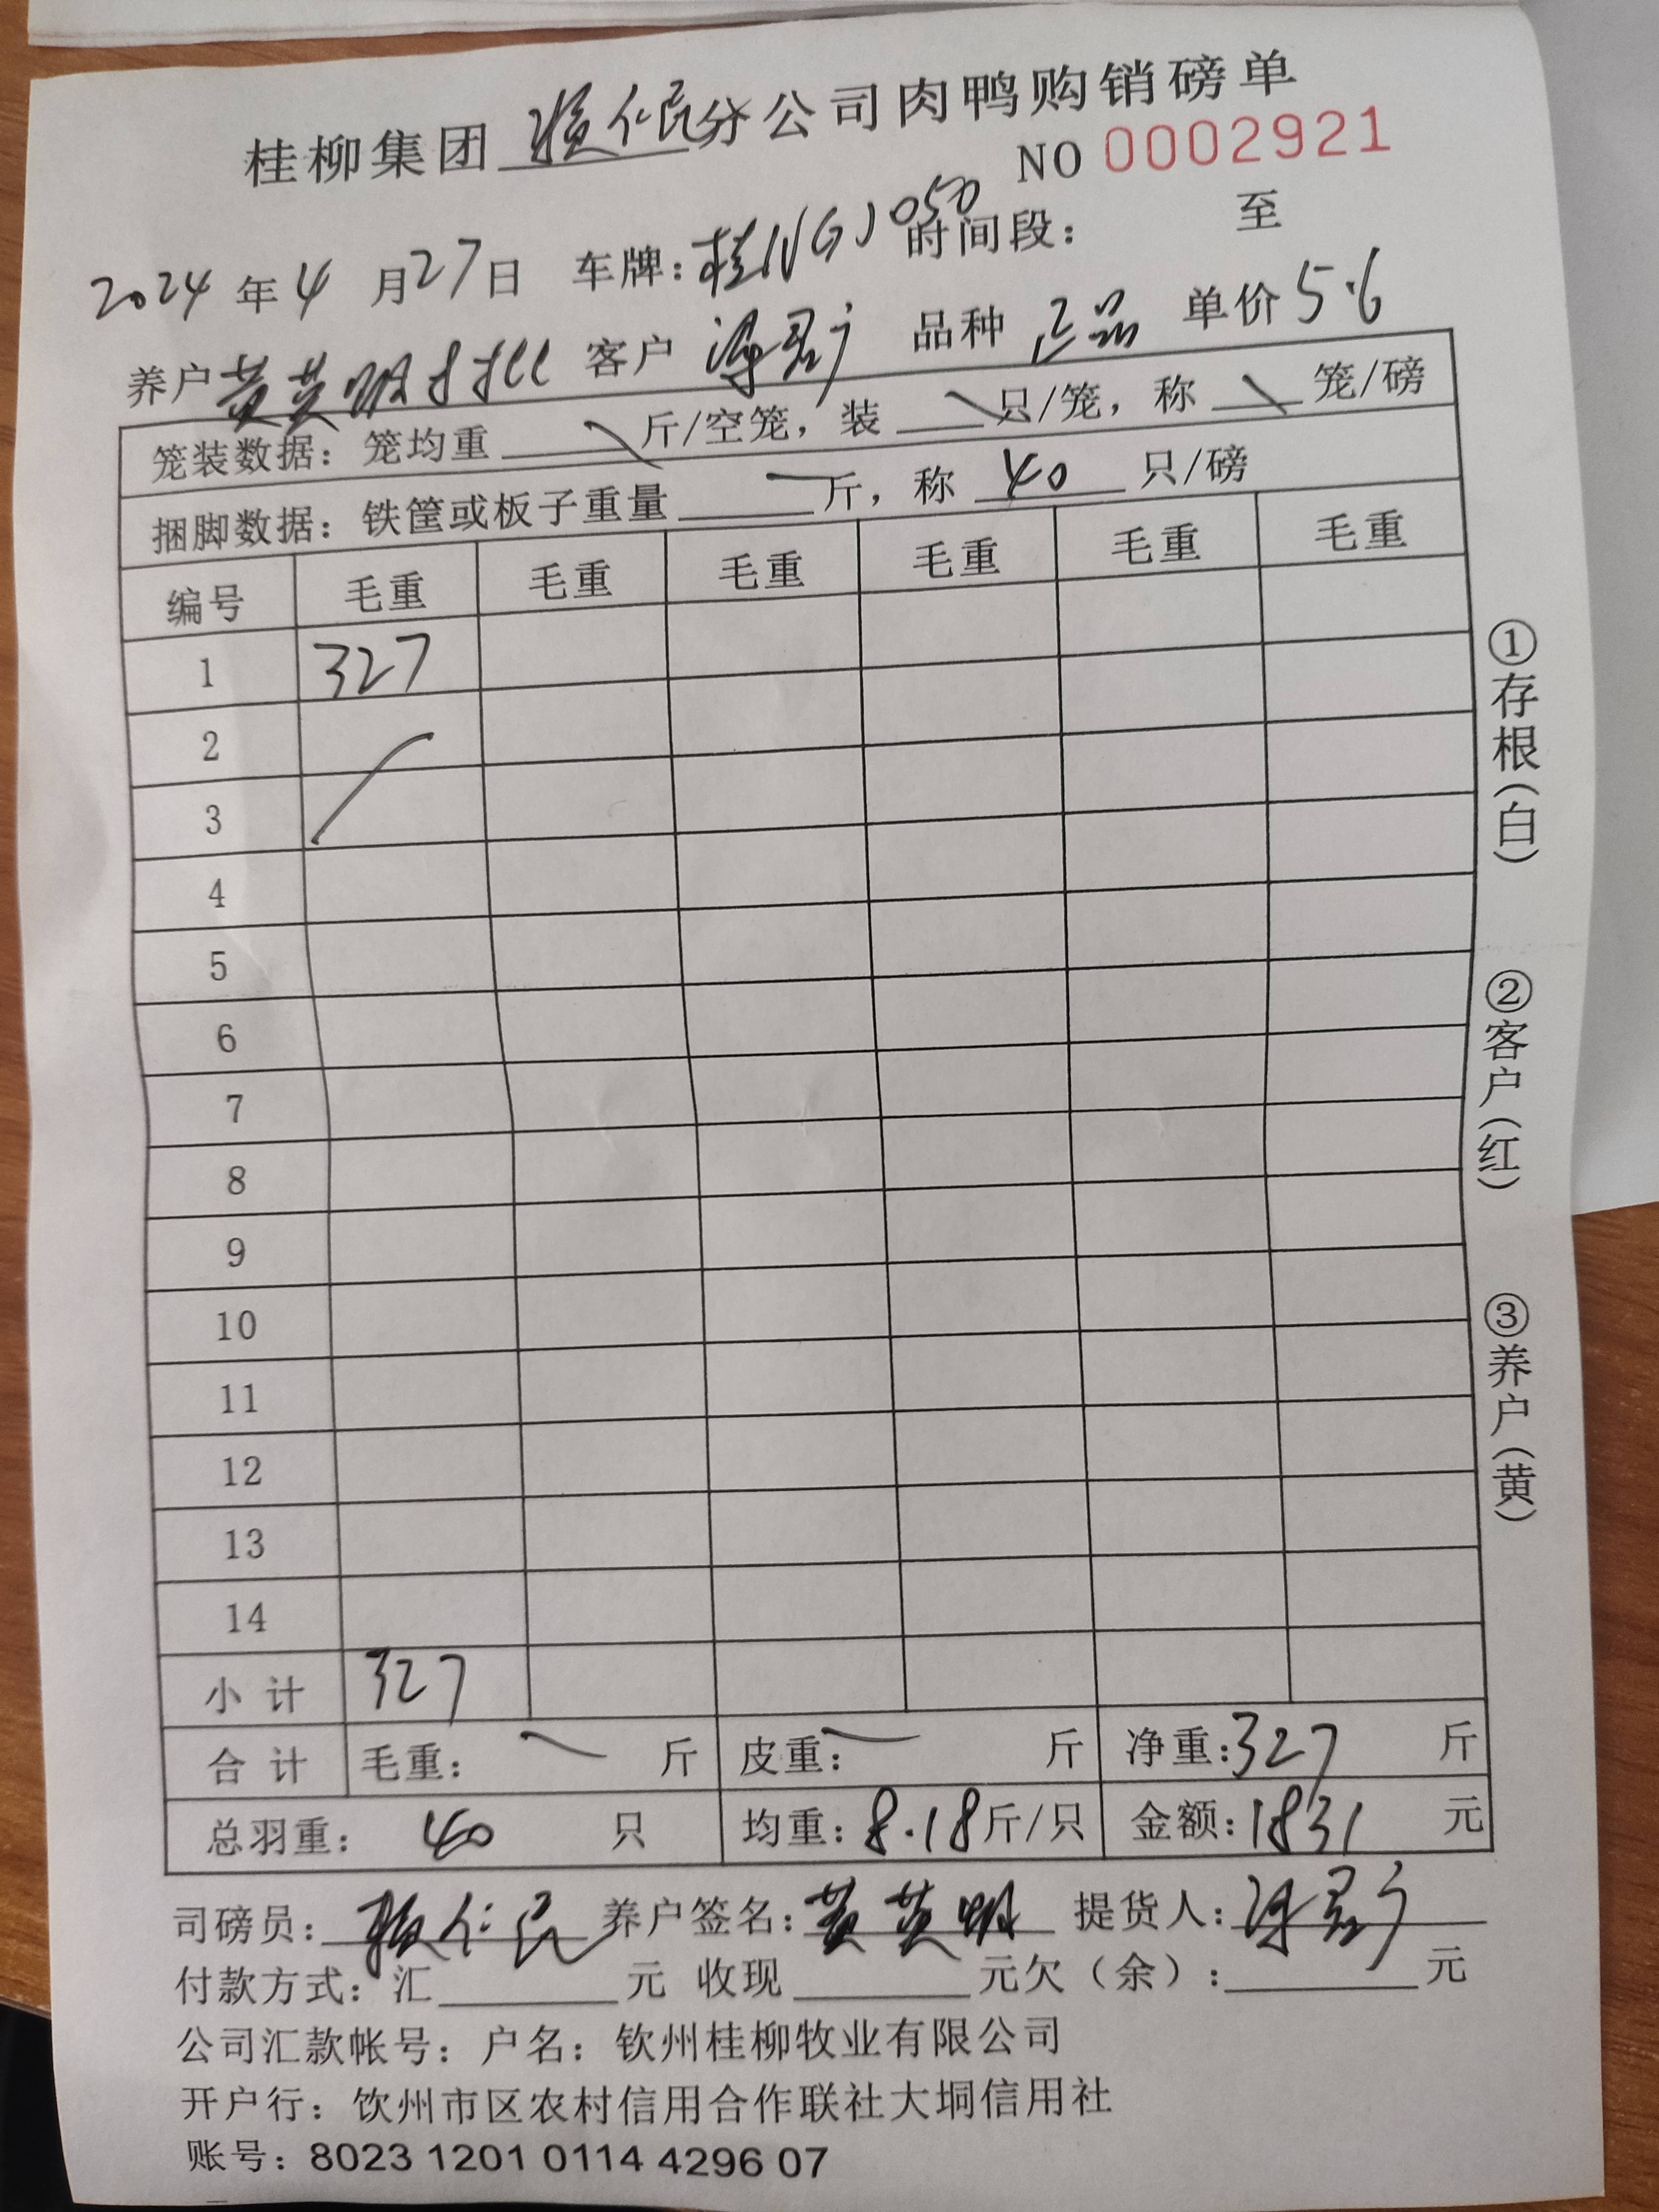 桂柳集团 仁民分公司肉鸭购销磅单
NO 0002921
2024 年 4 月 27 日 车牌: 桂N 050 时间段: 至
养户 黄英明 客户 品种 正品 单价 5.6
笼装数据: 笼均重 斤/空笼, 装 只/笼, 称 笼/磅
捆脚数据: 铁筐或板子重量 斤, 称 40 只/磅
编号 毛重 毛重 毛重 毛重 毛重 毛重
1 327
2
3
4
5
6
7
8
9
10
11
12
13
14
小计 327
合计 毛重: 斤 皮重: 斤 净重: 327 斤
总羽重: 40 只 均重: 8.18 斤/只 金额: 1831 元
司磅员: 仁民 养户签名: 黄英明 提货人:
付款方式: 汇 元 收现 元欠(余): 元
公司汇款帐号: 户名: 钦州桂柳牧业有限公司
开户行: 饮州市区农村信用合作联社大垌信用社
账号: 8023 1201 0114 4296 07
①存根(白)
②客户(红)
③养户(黄)